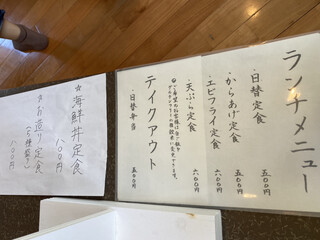 ランチメニュー
・日替定食 五〇〇円
・からあげ定食 五〇〇円
・エビフライ定食 六〇〇円
・天ぷら定食 六〇〇円
テイクアウト
・日替弁当 五〇〇円
☆海鮮丼定食
八〇〇円
☆お造り定食
八〇〇円